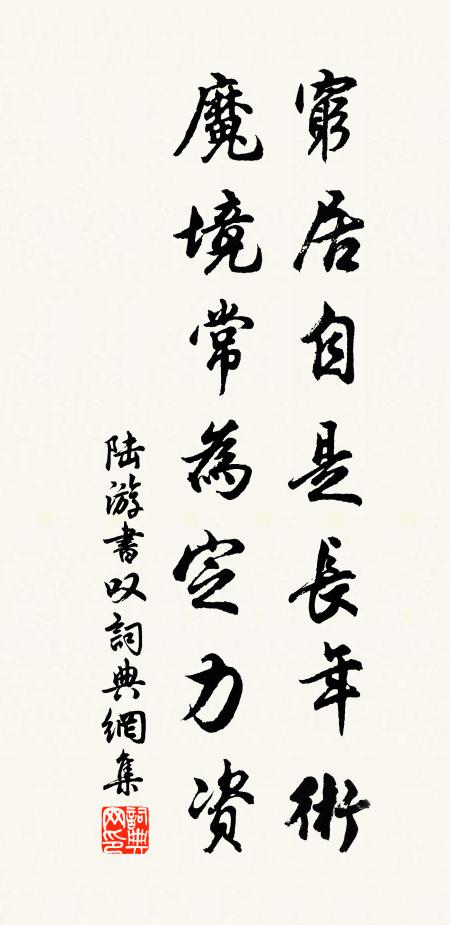 窮居自是長年術
魔境常為定力資
陸游書叹詞典網集
詞典网印